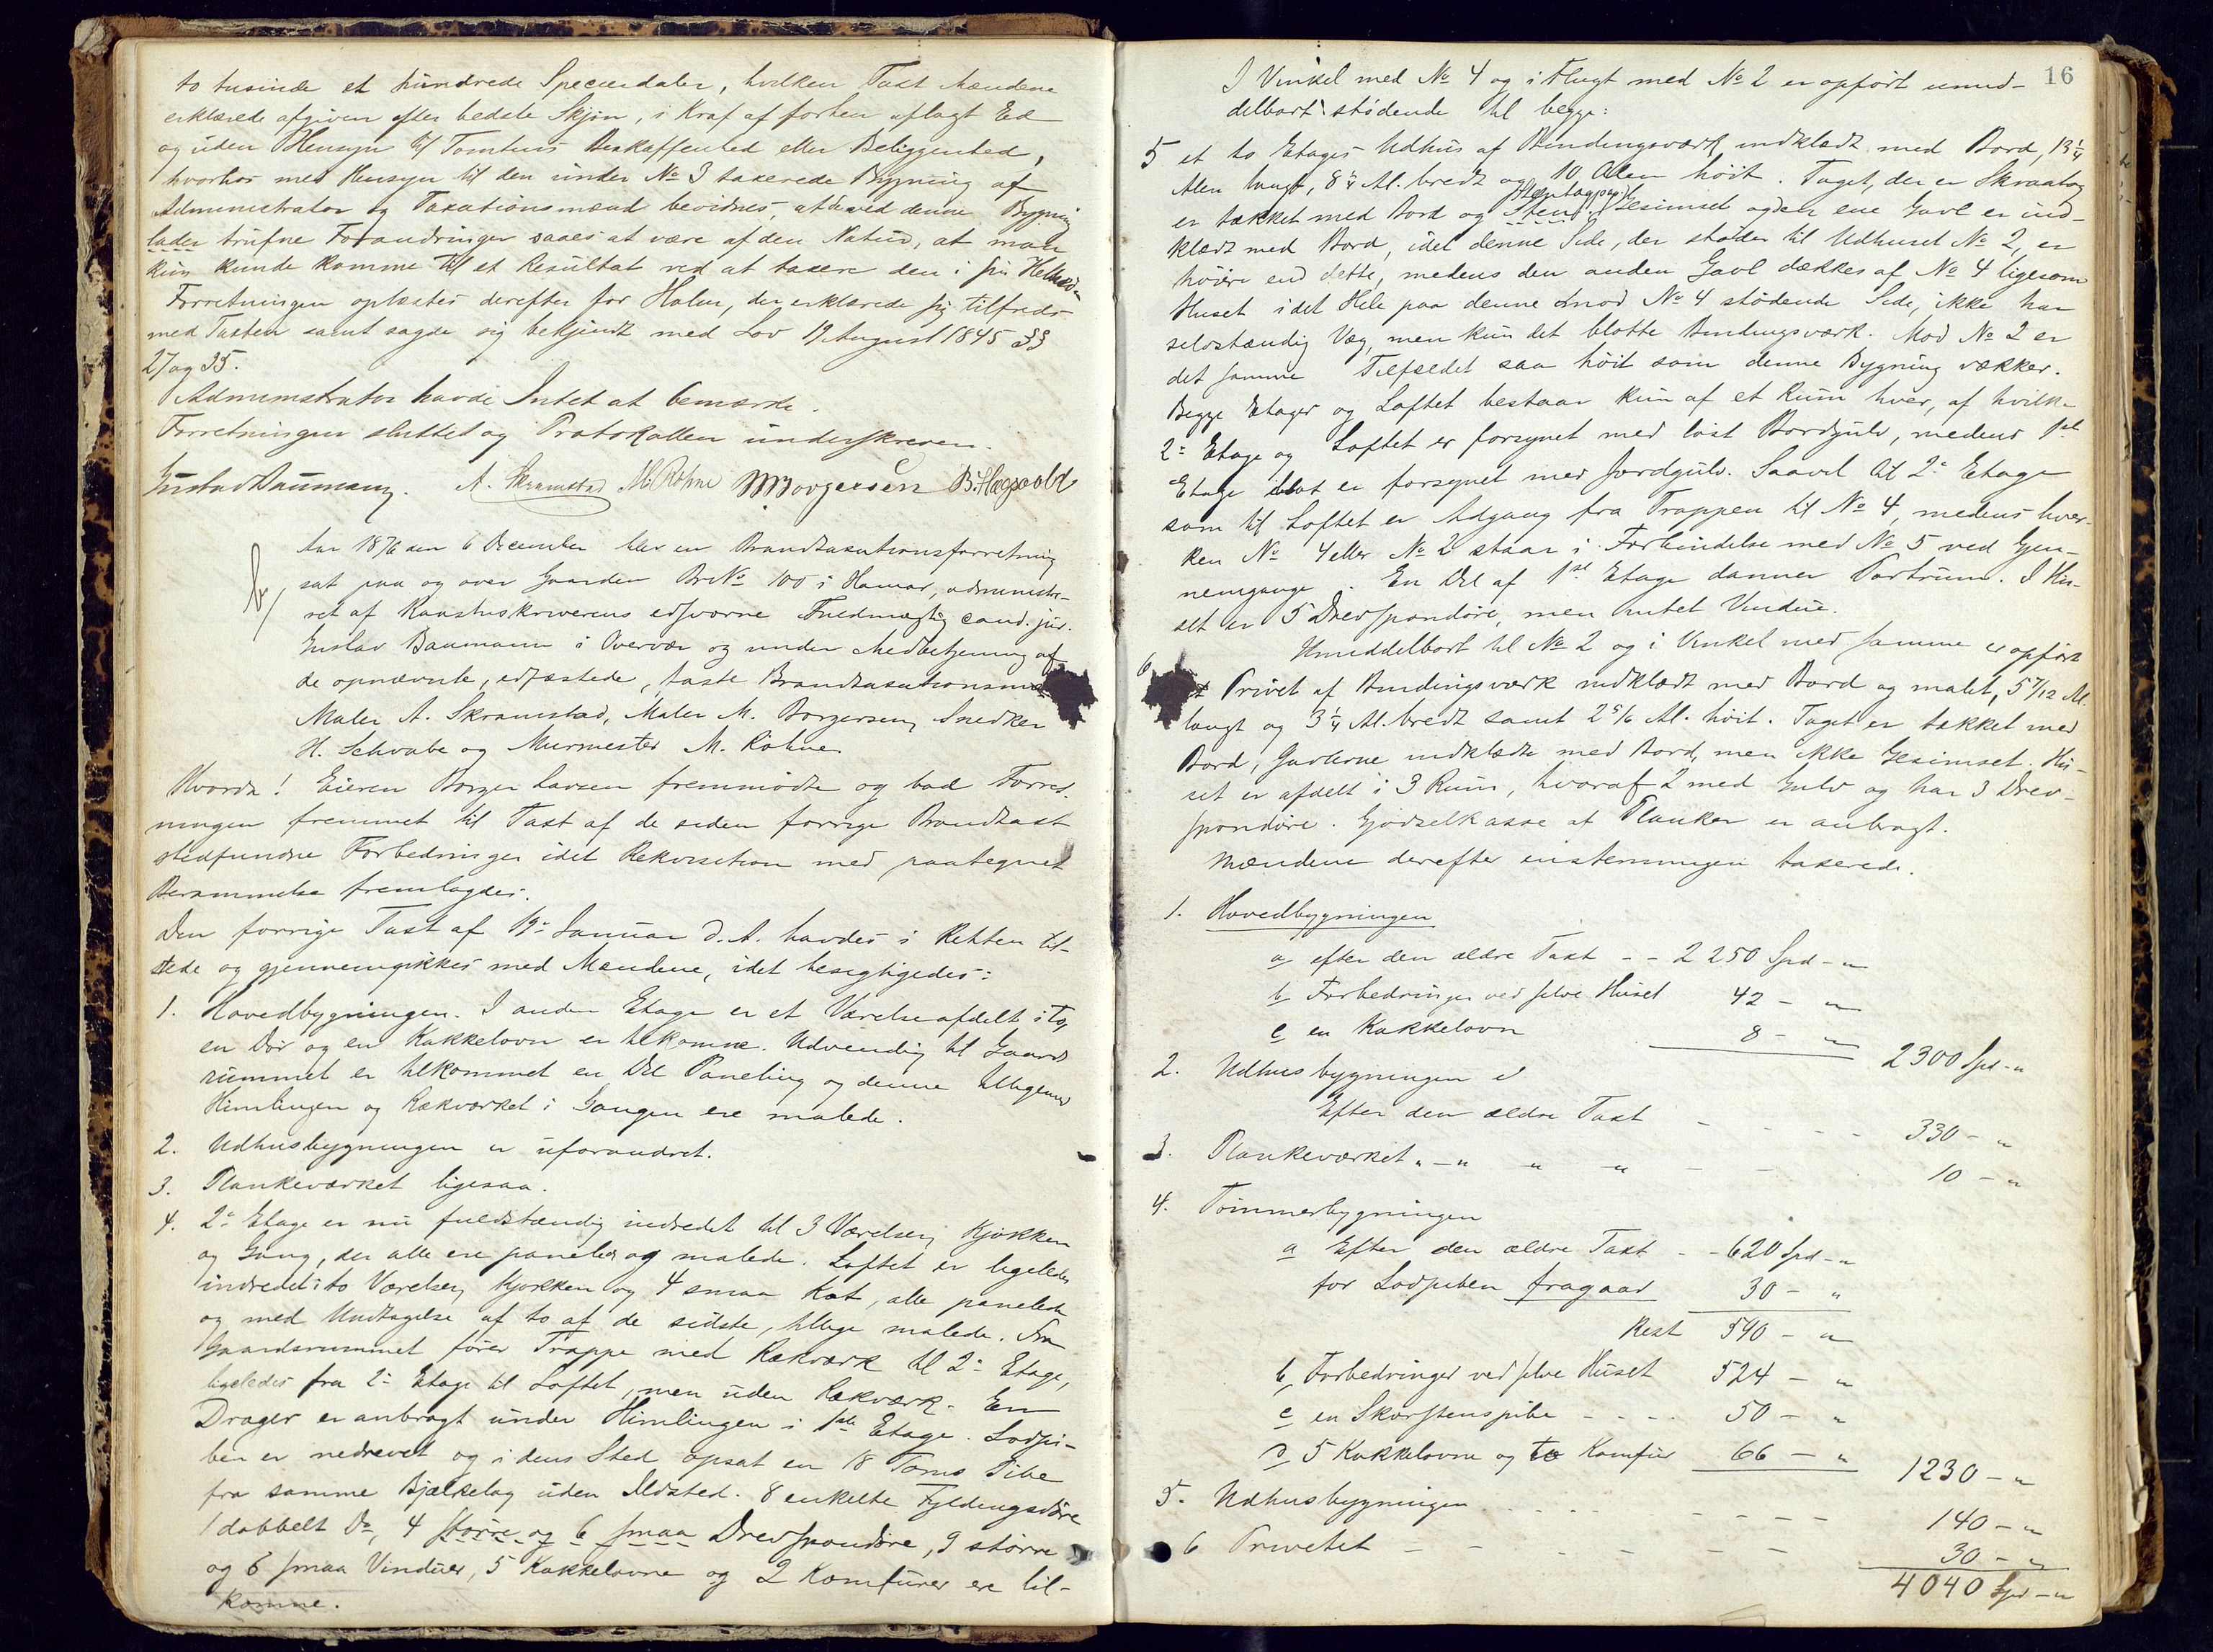 to tusinde et hundrede Speciedaler, hvilken Taxt Mændene
erklærede afgiven efter bedste Skjøn, i Kraf af forhen aflagt Ed
og uden Hensyn til Tomtens Beskaffenhed eller Beliggenhed,
hvorhos med Hensyn til den under No 3 taxerede Bygning af
Administrator og Taxationsmænd bevidnes, at de ved denne Bygning
trufne Forandringer saaes at være af den Natur, at man
kun kunde komme til et Resultat ved at taxere den i sin Helhed.
Forretningen oplæstes derefter for Holm, der erklærede sig tilfreds
med Taxten samt sagde sig bekjendt med Lov 19 August 1845 §§
27 og 35.
Administrator havde Intet at bemærke.
Forretningen sluttet og Protokollen underskreven.
Gustav Baumann. A. Skramstad M. Röhne M Borgersen B. Hagevold
Aar 1876 den 6 December blev en Brandtaxationsforretning
sat paa og over Gaarden Br No 100 i Hamar, administre-
ret af Raadstuskriverens edsvorne Fuldmægtig cand. jur.
Gustav Baumann i Overvær og under Medbetjening af
de opnævnte, edfæstede, faste Brandtaxationsmæ
Maler A. Skramstad, Maler M. Borgersen, Snedker
H. Schwabe og Murmester M. Röhne
Hvorda! Eieren Borger Larsen fremmødte og bad Forret-
ningen fremmet til Taxt af de siden forrige Brandtaxt
stedfundne Forbedringer idet Rekvisition med paategnet
Berammelse fremlagdes.
Den forrige Taxt af 19de Januar d. A. havdes i Retten til-
stede og gjennemgikkes med Mændene, idet besigtigedes:
1. Hovedbygningen. I anden Etage er et Værelse afdelt i To,
en Dør og en Kakkelovn er tilkomne. Udvendig til Gaards
rummet er tilkommet en Del Paneling og denne tilligemed
Himlingen og Rækværket i Gangen ere malede.
2. Udhusbygningen er uforandret.
3. Plankeværket ligesaa.
4. 2den Etage er nu fuldstændig indredet til 3 Værelser, Kjøkken
og Gang, der alle ere panelede og malede. Loftet er ligeledes
indredet i to Værelser, Kjøkken og 4 smaa Kot, alle panelede
og med Undtagelse af to af de sidste, tillige malede. Fra
Gaardsrummet fører Trappe med Rækværk til 2den Etage,
ligeledes fra 2den Etage til Loftet, men uden Rækværk. En
Drager er anbragt under Himlingen i 1ste Etage. Lodpi-
ben er nedrevet og i dens Sted opsat en 18 Toms Pibe
fra samme Bjælkelag uden Ildsted. 8 enkelte Fyldingsdøre
1 dobbelt Do, 4 større og 6 smaa Drevspondøre, 9 større
og 6 smaa Vinduer, 5 Kakkelovne og 2 Komfurer ere til-
komne.
16
I Vinkel med No 4 og i Flugt med No 2 er opført umid-
delbart stødende til begge:
5 et to Etages Udhus af Bindingsværk indklædt med Bord, 13 1/4
Alen langt, 8 1/4 Al. bredt og 10 Alen høit. Taget, der er Skraatag
er tækket med Bord og Sten. Gesimset og den ene Gavl er ind-
klædt med Bord, idet denne Side, der støder til Udhuset No 2, er
høiere end dette, medens den anden Gavl dækkes af No 4 ligesom
Huset i det Hele paa denne mod No 4 stødende Side, ikke har
selvstændig Væg, men kun det blotte Bindingsværk. Mod No 2 er
det samme Tilfældet saa høit som denne Bygning rækker.
Begge Etager og Loftet bestaar kun af et Rum hver, af hvilke
2den Etage og Loftet er forsynet med løst Bordgulv, medens 1ste
Etage blot er forsynet med Jordgulv. Saavel til 2den Etage
som til Loftet er Adgang fra Trappen til No 4, medens hver-
ken No 4 eller No 2 staar i Forbindelse med No 5 ved Gjen-
nemgange. En Del af 1ste Etage danner Portrum. I Hu-
set er 5 Drevspondøre, men intet Vindue.
Umiddelbart til No 2 og i Vinkel med samme er opført
6 et Privet af Bindingsværk indklædt med Bord og malet, 5 7/12 Al.
langt og 3 1/4 Al. bredt samt 2 5/6 Al. høit. Taget er tækket med
Bord, Gavlerne indklædte med Bord, men ikke Gesimset. Hu-
set er afdelt i 3 Rum, hvoraf 2 med Gulv og har 3 Drev-
spondøre. Gjødselkasse af Planker er anbragt.
Mændene derefter enstemmigen taxerede.
1. Hovedbygningen
a efter den ældre Taxt - - 2250 Spd - "
b Forbedringer ved selve Huset 42 - "
c en Kakkelovn 8 - " 2300 Spd - "
2. Udhusbygningen
Efter den ældre Taxt - - - - 330 - "
3. Plankeværket " - " " - " - - 10 - "
4. Tømmerbygningen
a Efter den ældre Taxt - - 620 Spd - "
for Lodpiben fragaar 30 - "
Rest 590 - "
b Forbedringer ved selve Huset 524 - "
c en Skorstenspibe - - - - 50 - "
d 5 Kakkelovne og to Komfur 66 - " 1230 - "
5. Udhusbygningen - - - - 140 - "
6 Privetet - - - - - - 30 - "
4040 Spd - "